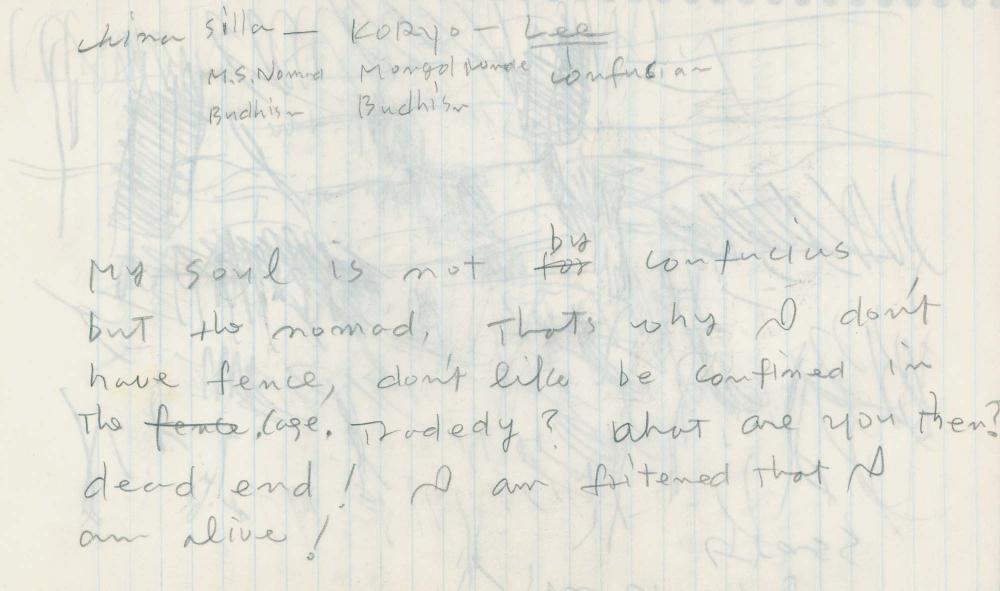 china silla — KORyo — Lee
M.S. Nomad Mongol nomde confusian
Budhism Budhism
My soul is not by confucius
but the nomad, Thats why I don't
have fence, don't like be confined in
The cage. Tradedy? What are you then?
dead end! I am fritened that I
am alive!